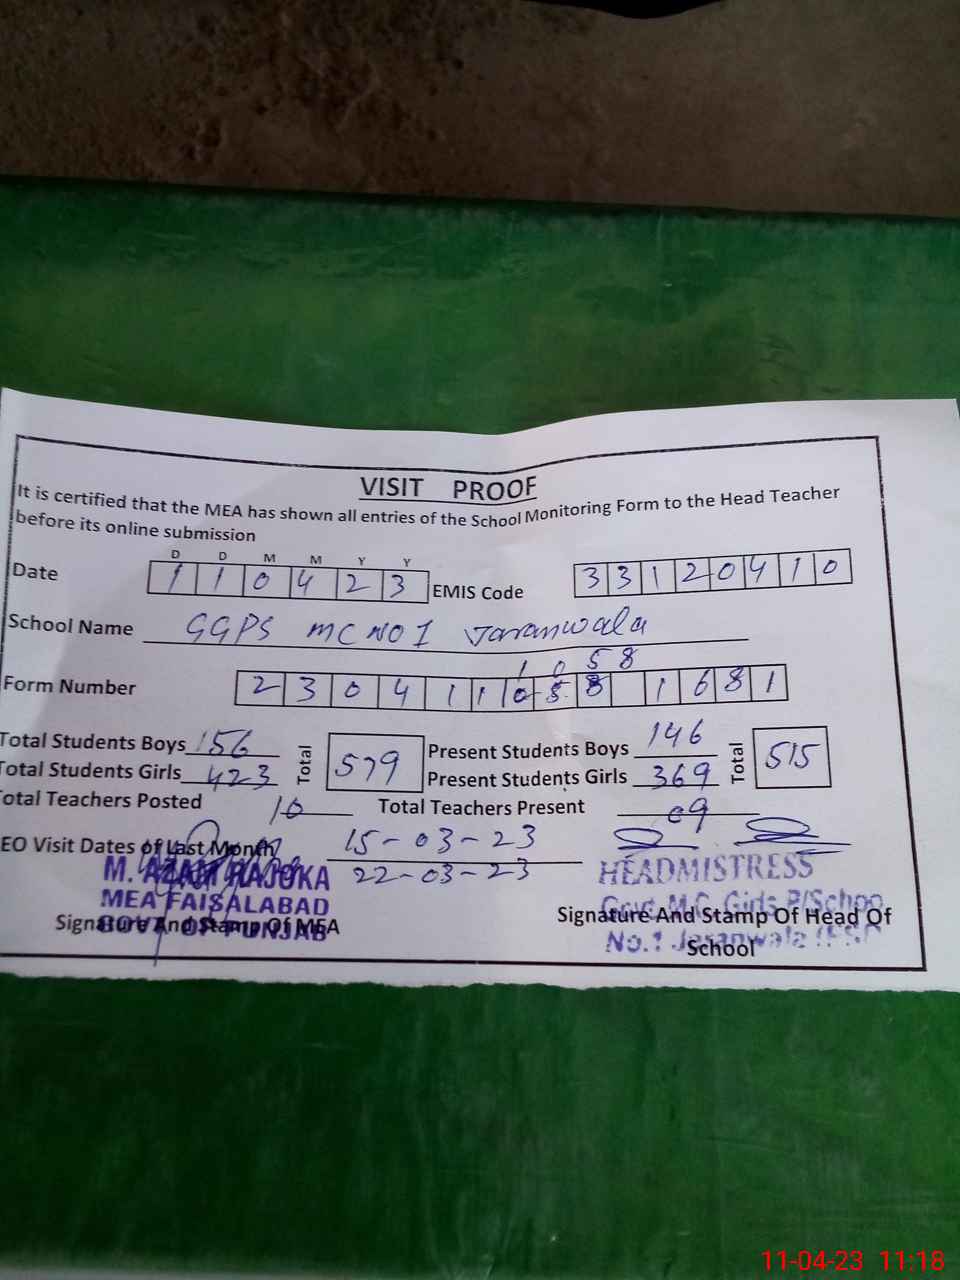 VISIT PROOF
It is certified that the MEA has shown all entries of the School Monitoring Form to the Head Teacher
before its online submission
D D M M Y Y
Date 1 1 0 4 2 3 EMIS Code 3 3 1 2 0 4 1 0
School Name GGPS MC NO 1 Jaranwala
1 0 5 8
Form Number 2 3 0 4 1 1 0 5 8 1 6 8 1
Total Students Boys 156 Total 579 Present Students Boys 146 Total 515
Total Students Girls 423 Present Students Girls 369
Total Teachers Posted 10 Total Teachers Present 09
EO Visit Dates of Last Month 15-03-23
22-03-23
M. AZAM RAJOKA
MEA FAISALABAD
GOVT OF PUNJAB
Signature And Stamp Of MEA
HEADMISTRESS
Govt. M.C. Girls P/School
Signature And Stamp Of Head Of
No.1 Jaranwala
School
11-04-23 11:18